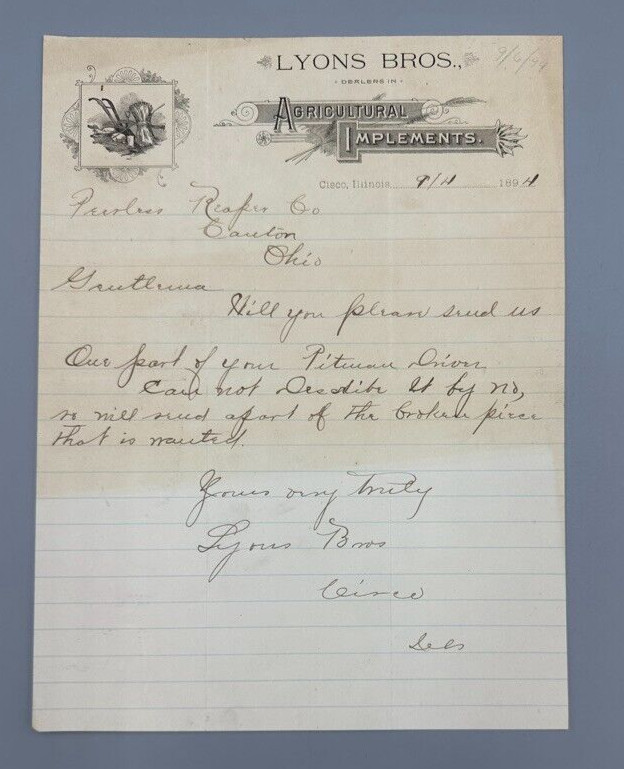 LYONS BROS.,
DEALERS IN
AGRICULTURAL
IMPLEMENTS.
Cisco, Illinois, 9/4 1894
Peerless Reaper Co
Canton
Ohio
Gentlemen
Will you please send us
One part of your Pitman Driver
Can not Describe It by no,
so will send a part of the broken piece
that is wanted.
Yours very truly
Lyons Bros
Cisco
Ills